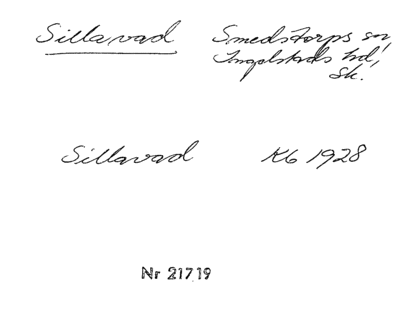 Sillavad Smedstorps sn,
Ingelstads hd,
Sk.
Sillavad Kb 1928
Nr 21719